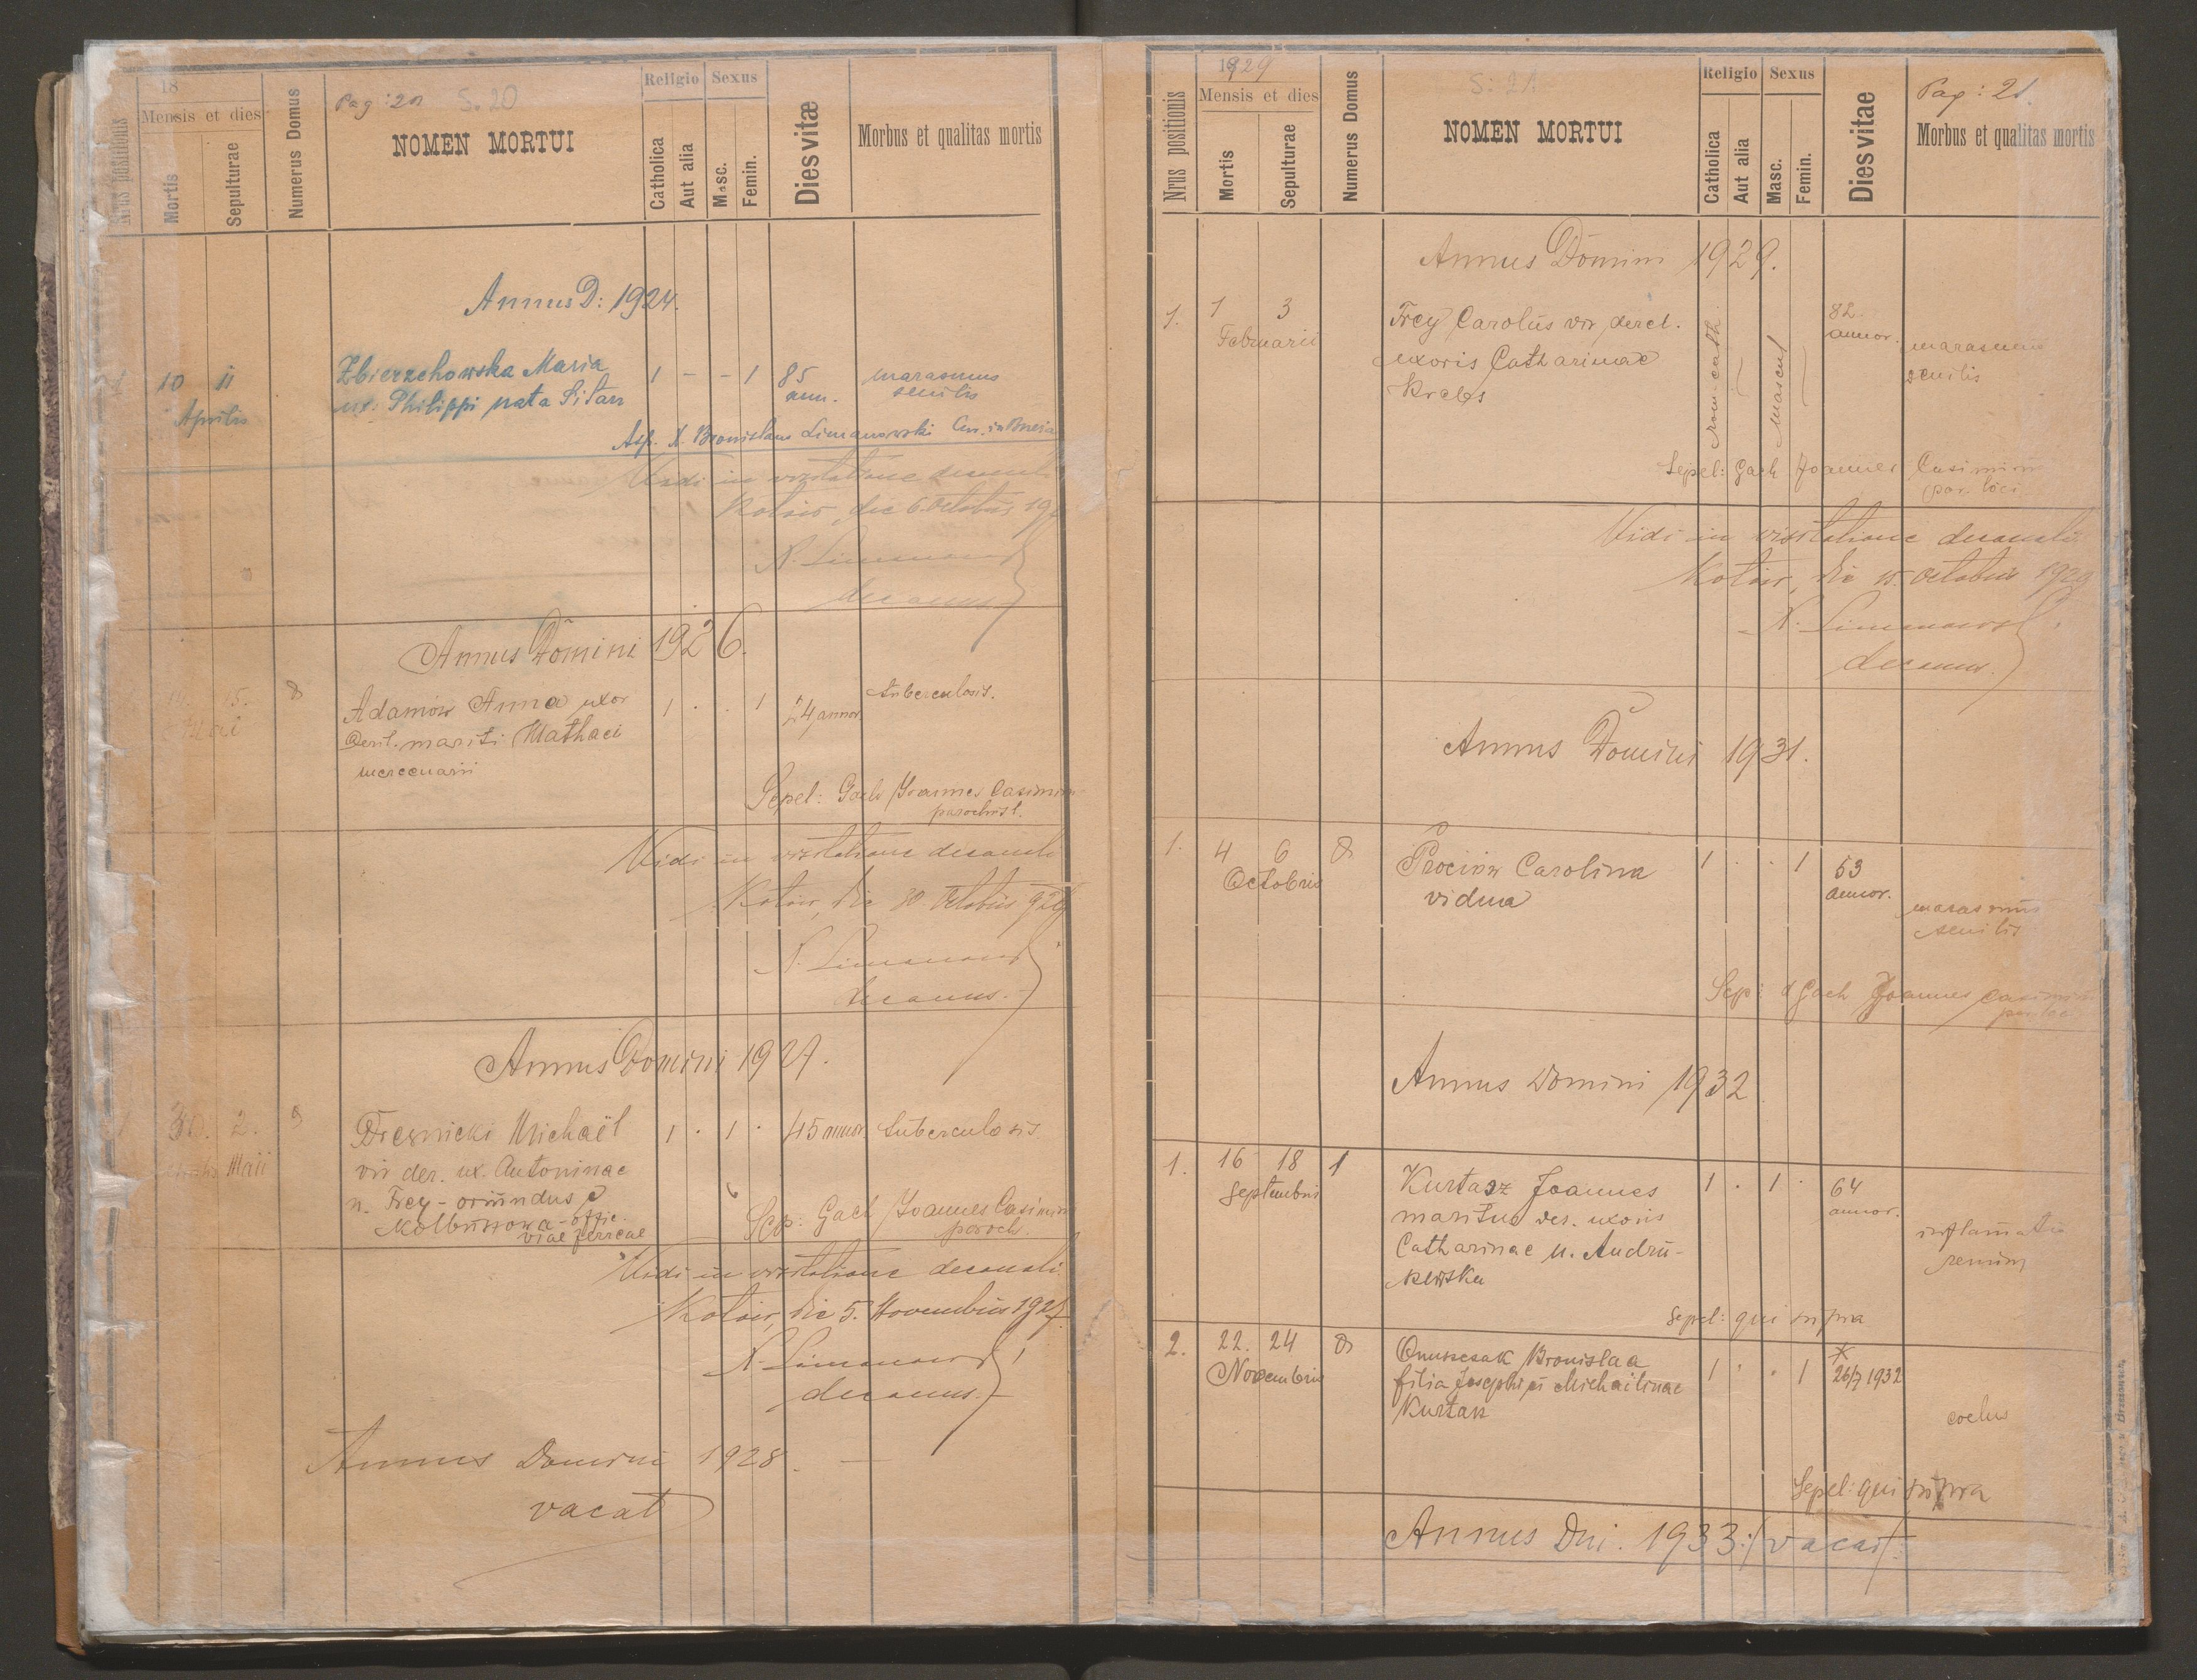 18
Mensis et dies
Nrus positionis
Mortis
Sepulturae
Numerus Domus
Pag: 20 S. 20
NOMEN MORTUI
Religio
Sexus
Catholica
Aut alia
Masc.
Femin.
Dies vitæ
Morbus et qualitas mortis
Annus D: 1924.
10 11
Aprilis
Zbierzchowska Maria
ux. Philippi nata Sitan
1 - - 1
85
ann.
marasmus
senilis
Asp. X. Bronislaus Limanowski
Vidi in visitatione decanali
Kotów, die 6 Octobris
N. Limanowski
decanus
Annus Domini 1926.
15.
Maii
8
Adamów Anna uxor
mariti Mathaei
mercenarii
1 . . 1
24 annor.
tuberculosis.
Sepel: Gach Joannes Casimirus
parochus l.
Vidi in visitatione decanali
Kotów, die 30. Octobris
N. Limanowski
decanus.
Annus Domini 1927.
1 30. 2.
Maii
8
Drewnicki Michaël
vir der. ux. Antoninae
n. Frey - oriundus e
Kolbuszowa - offic.
viae ferreae
1 . 1 .
45 annor.
tuberculosis
Sep: Gach Joannes Casimirus
paroch
Vidi in visitatione decanali
Kotów, die 5. Novembris 1927.
N. Limanowski
decanus.
Annus Domini 1928. —
vacat
1929
Mensis et dies
Nrus positionis
Mortis
Sepulturae
Numerus Domus
S. 21
NOMEN MORTUI
Religio
Sexus
Catholica
Aut alia
Masc.
Femin.
Dies vitæ
Pag: 21.
Morbus et qualitas mortis
Annus Domini 1929.
1. 1 3
Februarii
Frey Carolus vir derel.
uxoris Catharinae
Krebs
rom. cath.
mascul
82
annor.
marasmus
senilis
Sepel: Gach Joannes Casimirus
par. loci
Vidi in visitatione decanali
Kotów, die 15. Octobris 1929
N. Limanowski
decanus.
Annus Domini 1931.
1. 4 6
Octobris
8
Prociów Carolina
vidua
1 . . 1
53
annor.
marasmus
senilis
Sep: Gach Joannes Casimirus
par. loci
Annus Domini 1932
1. 16 18 1
Septembris
Kurtasz Joannes
maritus der. uxoris
Catharinae n. Andru-
szewska
1 . 1 .
64
annor.
inflamatio
renum
Sepel: qui supra
2. 22. 24 8
Novembris
Onuszczak Bronislaa
filia Josephi et Michailinae
Kurtasz
1 . . 1
*
26/7 1932
Sepel: qui supra
Annus Dni. 1933 :/vacat/: